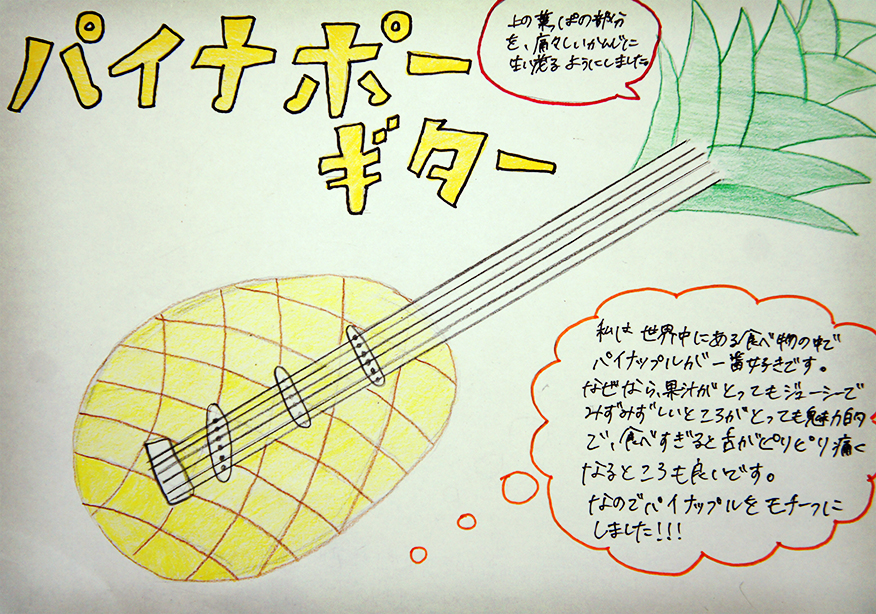 パイナポー
ギター
上の葉っぱの部分
を、痛々しいかんじに
生い茂るようにしました
私は世界中にある食べ物の中で
パイナップルが一番好きです。
なぜなら、果汁がとってもジューシーで
みずみずしいところがとっても魅力的
で、食べすぎると舌がぴりぴり痛く
なるところも良いです。
なのでパイナップルをモチーフに
しました!!!